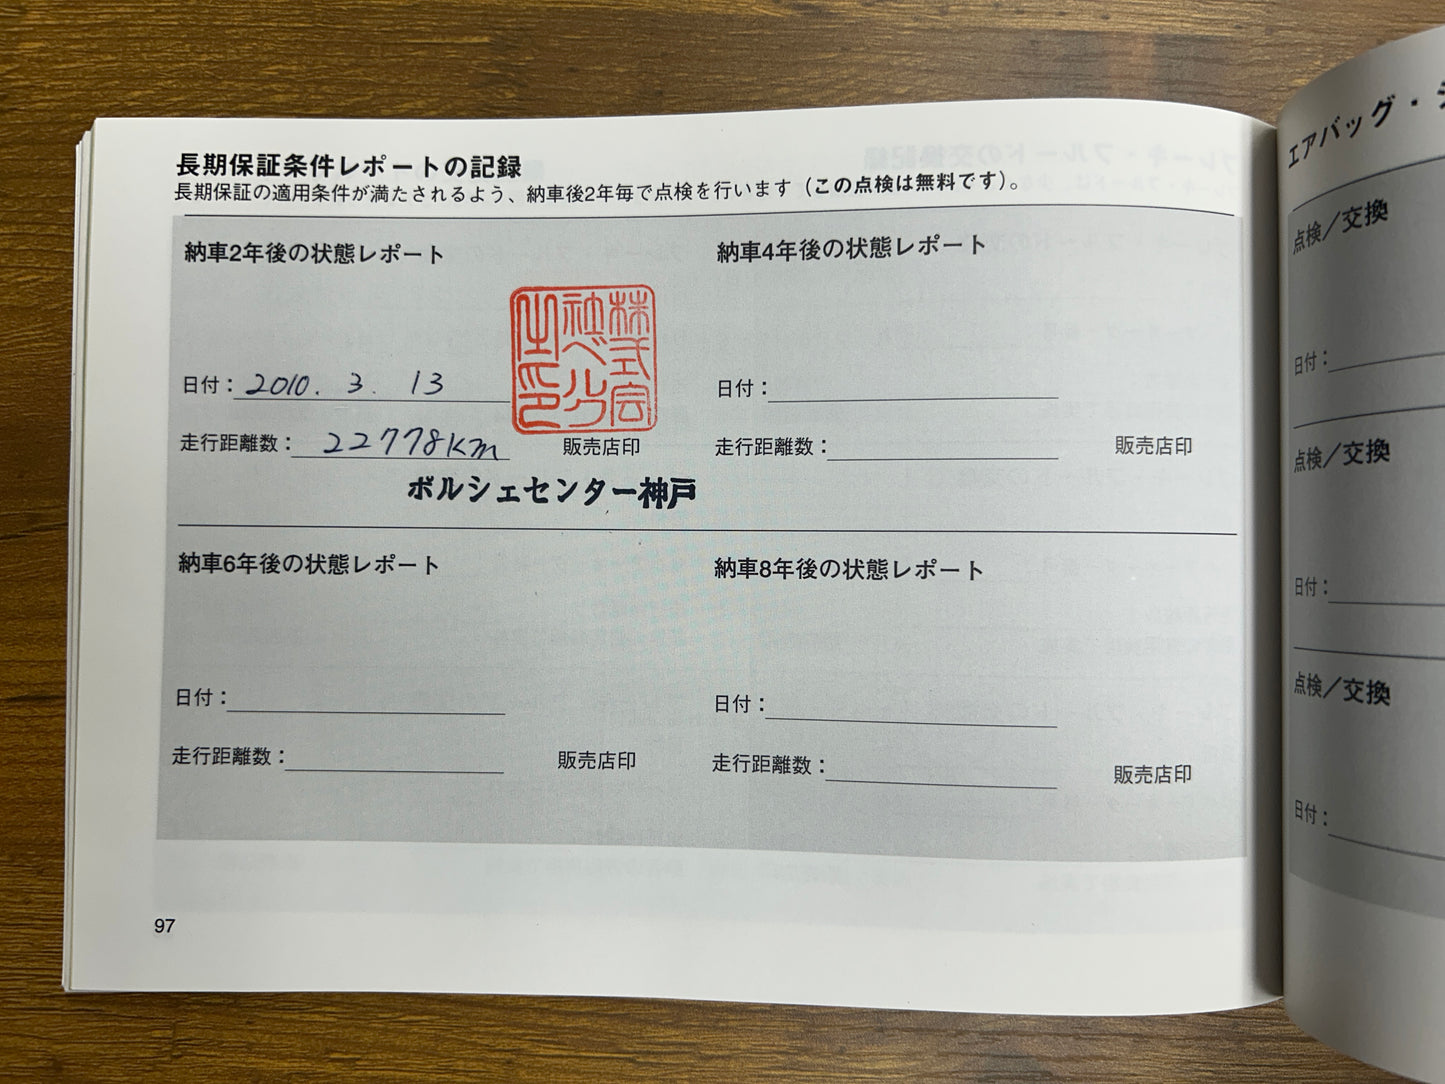 長期保証条件レポートの記録
長期保証の適用条件が満たされるよう、納車後2年毎で点検を行います（この点検は無料です）。
納車2年後の状態レポート
株式会
日付：2010. 3. 13
走行距離数：22778km
販売店印
ポルシェセンター神戸
納車4年後の状態レポート
日付：
走行距離数：
販売店印
納車6年後の状態レポート
日付：
走行距離数：
販売店印
納車8年後の状態レポート
日付：
走行距離数：
販売店印
97
エアバッグ・
点検／交換
日付：
点検／交換
日付：
点検／交換
日付：